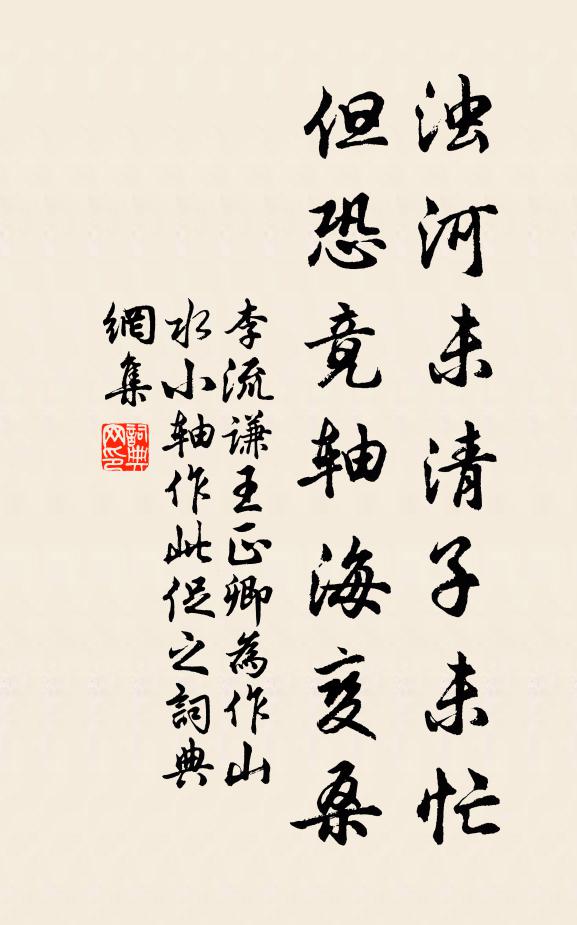 浊河未清子未忙
但恐竟轴海变桑
李流谦王正卿為作山
水小轴作此促之詞典
網集
詞典网印